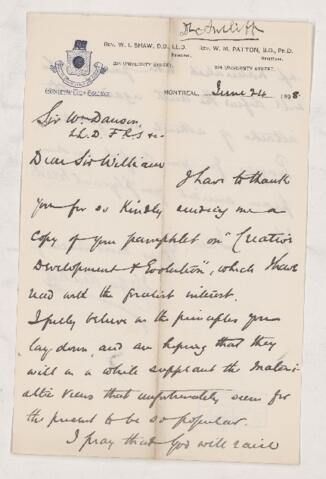 REV. W. I. SHAW, D.D., LL.D.
Principal,
228 UNIVERSITY STREET.
REV. W. M. PATTON, B.D., PH.D.
228 UNIVERSITY STREET.
MONTREAL, June 24 1898
Sir Wm Dawson
LL.D. F.R.S &c
Dear Sir William
I have to thank
you for so kindly sending me a
copy of your pamphlet on "Creative
Development & Evolution", which I have
read with the greatest interest.
I fully believe in the principles you
lay down and am hoping that they
will in a while supplant the materi-
alistic views that unfortunately seem for
the present to be so popular.
I pray that God will raise